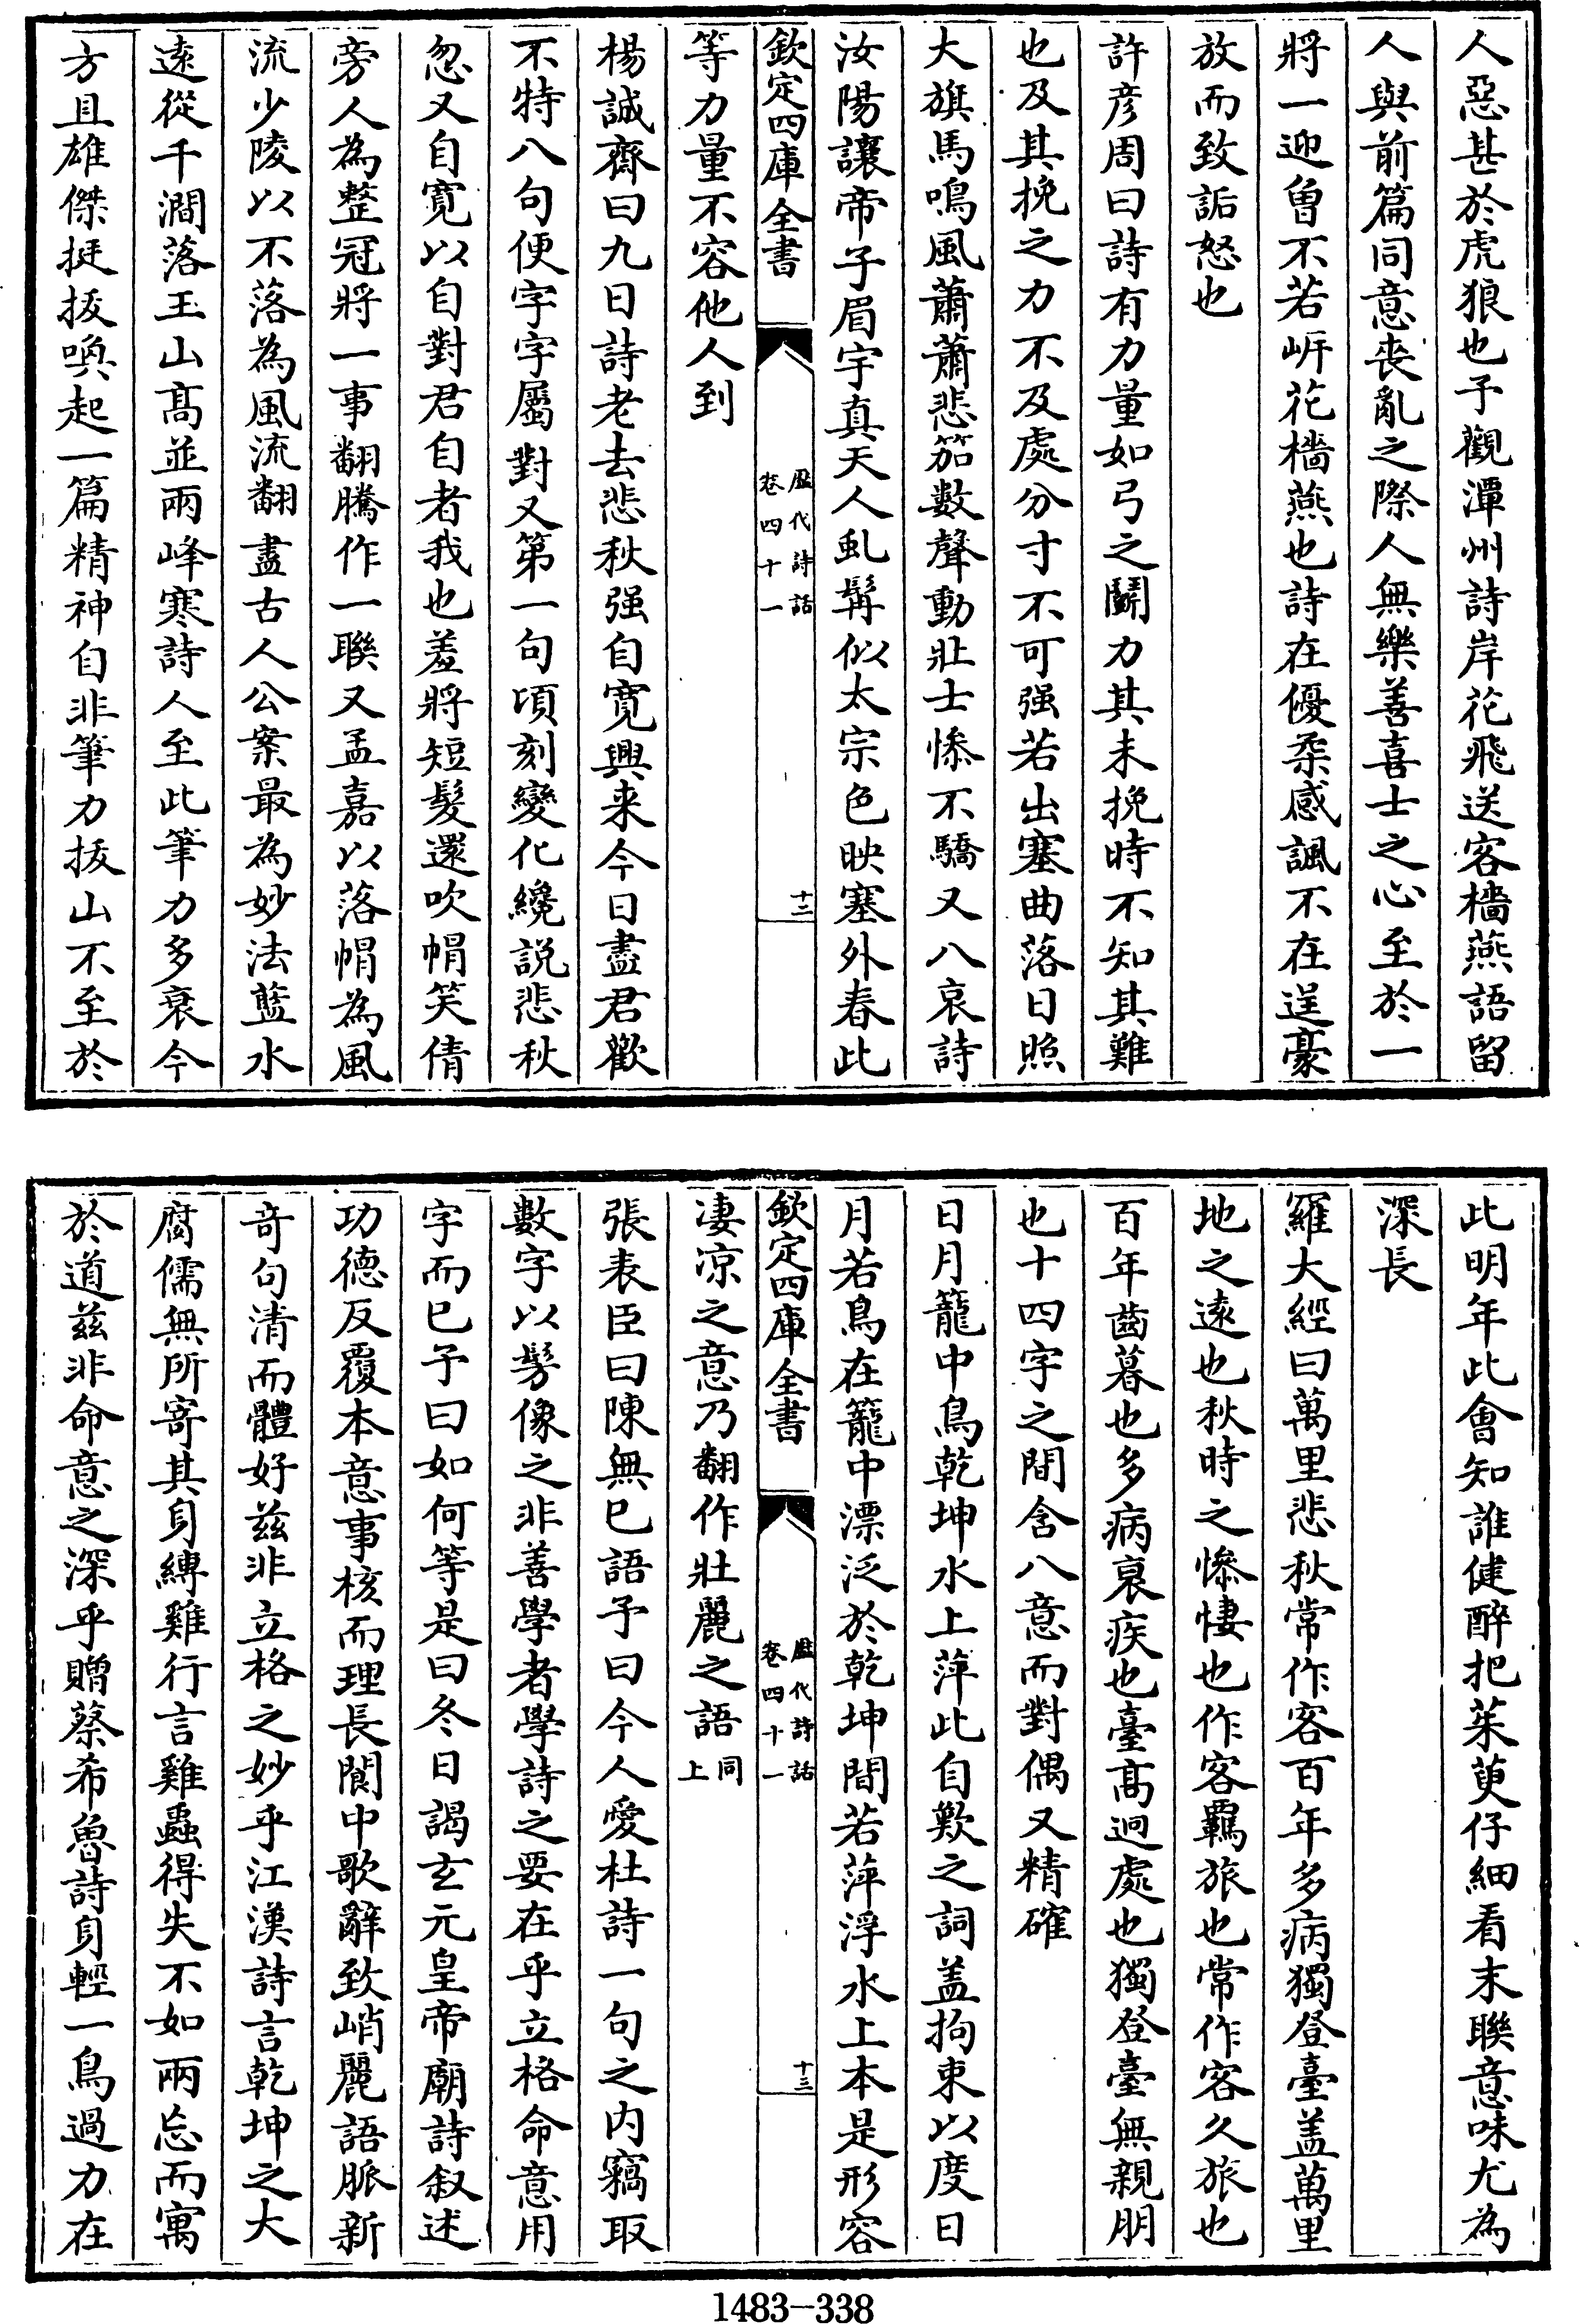 人惡甚於虎狼也予觀潭州詩岸花飛送客檣燕語留
人與前篇同意喪亂之際人無樂善喜士之心至於一
將一迎曾不若岍花檣燕也詩在優柔感諷不在逞豪
放而致詬怒也
許彦周曰詩有力量如弓之鬭力其未挽時不知其難
也及其挽之力不及處分寸不可强若出塞曲落日照
大旗馬鳴風蕭蕭悲笳數聲動壯士慘不驕又八哀詩
汝陽讓帝子眉宇真天人虬髯似太宗色映塞外春此
欽定四庫全書
歷代詩話
卷四十一
十二
等力量不容他人到
楊誠齋曰九日詩老去悲秋强自寬興来今日盡君歡
不特八句便字字屬對又第一句頃刻變化纔説悲秋
忽又自寛以自對君自者我也羞將短髮還吹帽笑倩
旁人為整冠將一事翻騰作一聯又孟嘉以落帽為風
流少陵以不落為風流翻盡古人公案最為妙法藍水
逺從千澗落玉山髙並兩峰寒詩人至此筆力多衰今
方且雄傑挺拔喚起一篇精神自非筆力拔山不至於
此明年此會知誰健醉把茱萸仔細看末聯意味尤為
深長
羅大經曰萬里悲秋常作客百年多病獨登臺盖萬里
地之逺也秋時之慘悽也作客羈旅也常作客久旅也
百年齒暮也多病衰疾也臺髙迥處也獨登臺無親朋
也十四字之間含八意而對偶又精確
日月籠中鳥乾坤水上萍此自歎之詞盖拘束以度日
月若鳥在籠中漂泛於乾坤間若萍浮水上本是形容
欽定四庫全書
歷代詩話
卷四十一
十三
凄凉之意乃翻作壯麗之語同上
張表臣曰陳無已語予曰今人愛杜詩一句之内竊取
數字以髣像之非善學者學詩之要在乎立格命意用
字而已予曰如何等是曰冬日謁玄元皇帝廟詩叙述
功德反覆本意事核而理長閬中歌辭致峭麗語脈新
竒句清而體好兹非立格之妙乎江漢詩言乾坤之大
腐儒無所寄其身縛雞行言雞蟲得失不如兩忘而寓
於道兹非命意之深乎贈蔡希魯詩身輕一鳥過力在
1483-338